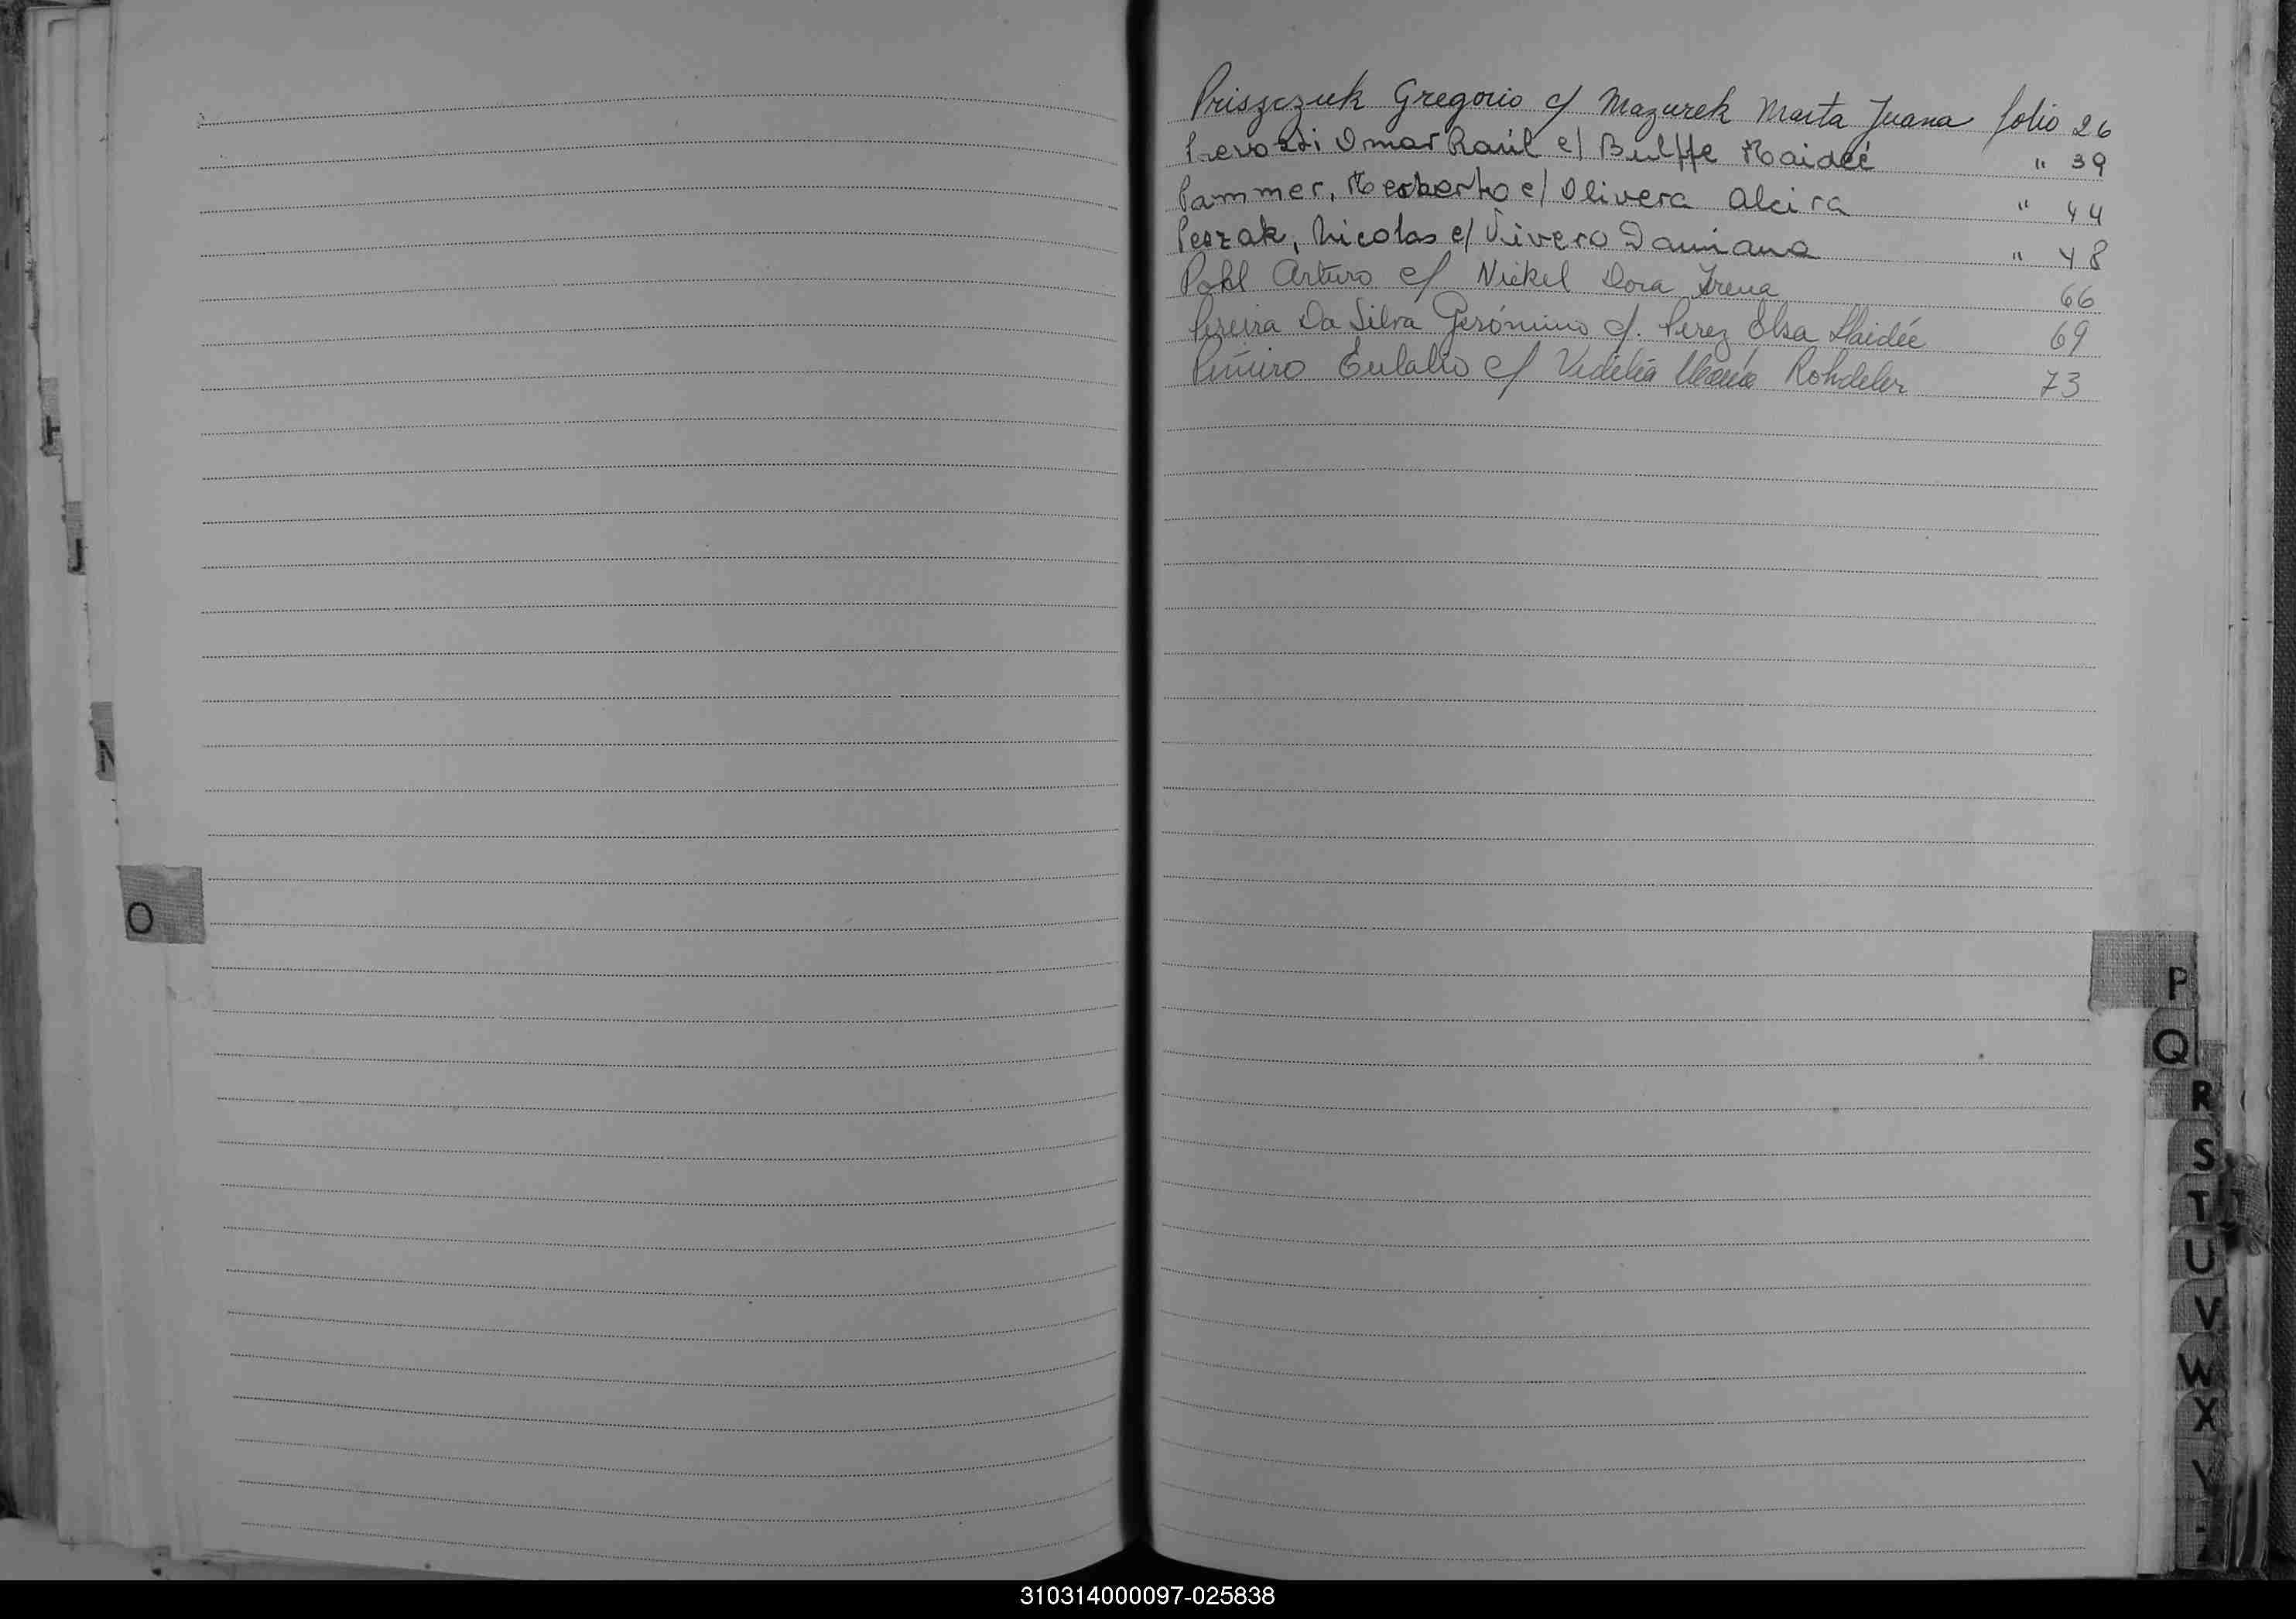 Priszczuk Gregorio c/ Mazurek Marta Juana folio 26
Prevozzi Omar Raúl c/ Bulffe Haideé " 39
Pammer, Herberto c/ Olivera Alcira " 44
Peszak, Nicolas c/ Vivero Damiana " 48
Pohl Arturo c/ Nickel Dora Irena 66
Pereira Da Silva Gerónimo c/. Perez Elsa Haidée 69
Piñiro Eulalio c/ Vidélia María Rohdeler 73
J
N
O
P
Q
R
S
T
U
V
W
X
310314000097-025838